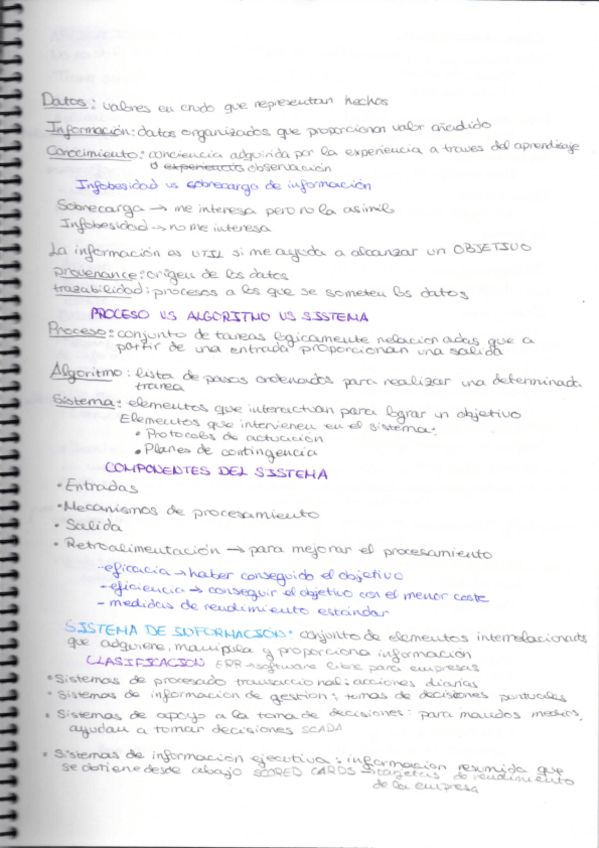 Datos: valores en crudo que representan hechos
Información: datos organizados que proporcionan valor añadido
Conocimiento: conciencia adquirida por la experiencia a traves del aprendizaje
o experiencia observación
Infobesidad vs sobrecarga de información
Sobrecarga → me interesa pero no la asimilo
Infobesidad → no me interesa
La información es UTIL si me ayuda a alcanzar un OBJETIVO
provenance: origen de los datos
trazabilidad: procesos a los que se someten los datos
PROCESO VS ALGORITMO VS SISTEMA
Proceso: conjunto de tareas logicamente relacionadas que a
partir de una entrada proporcionan una salida
Algoritmo: lista de pasos ordenados para realizar una determinada
tarea
Sistema: elementos que interactuan para lograr un objetivo
Elementos que intervienen en el sistema:
• Protocolos de actuación
• Planes de contingencia
COMPONENTES DEL SISTEMA
• Entradas
• Mecanismos de procesamiento
• Salida
• Retroalimentación → para mejorar el procesamiento
- eficacia → haber conseguido el objetivo
- eficiencia → conseguir el objetivo con el menor coste
- medidas de rendimiento estándar
SISTEMA DE INFORMACIÓN: conjunto de elementos interrelacionados
que adquiere, manipula y proporciona información
CLASIFICACION ERP → software libre para empresas
• Sistemas de procesado transaccional: acciones diarias
• Sistemas de informacion de gestion: tomas de decisiones puntuales
• Sistemas de apoyo a la toma de decisiones: para mandos medios,
ayudan a tomar decisiones SCADA
• Sistemas de información ejecutiva: informacion resumida que
se obtiene desde abajo SCORED CARDS → tarjetas de rendimiento
de la empresa